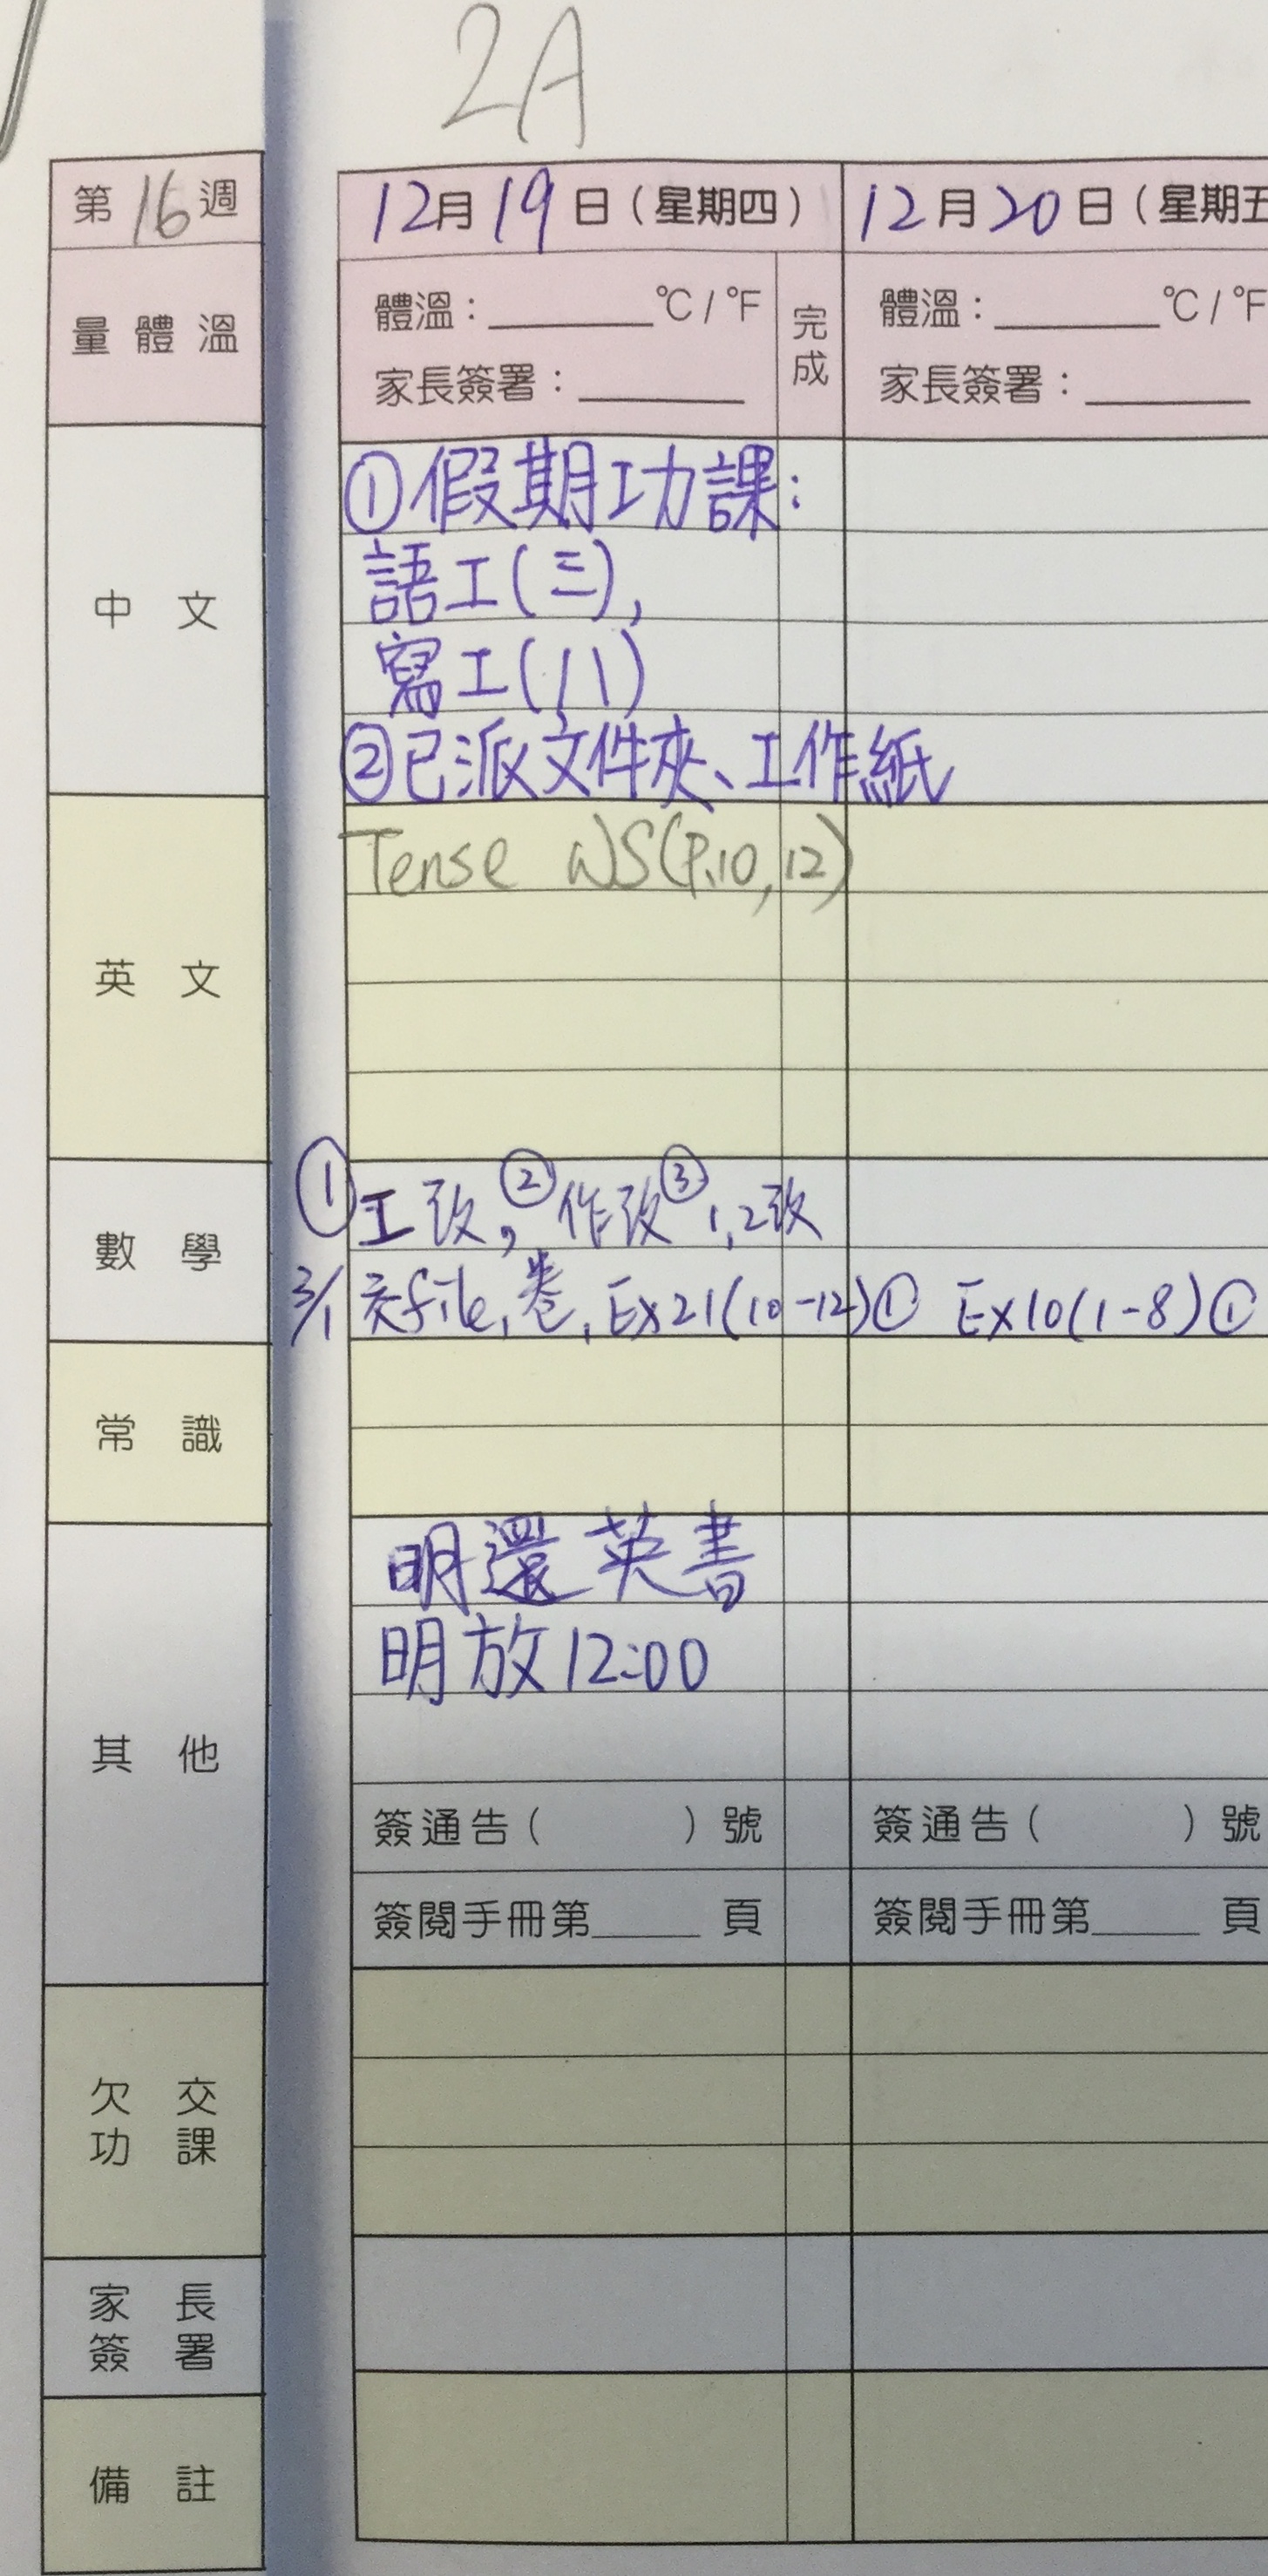 2A
第16週 12月19日(星期四) 12月20日(星期五
量體溫 體溫:______°C/°F 完成 體溫:______°C/°F
家長簽署:______ 家長簽署:______
中文 ①假期功課:
語工(三),
寫工(八)
②已派文件夾、工作紙
英文 Tense WS(P.10,12)
數學 ①工改,②作改③1,2改
3/1 交file,卷,Ex21(10-12)① Ex10(1-8)①
常識
其他 明還英書
明放12:00
簽通告( )號 簽通告( )號
簽閱手冊第____頁 簽閱手冊第____頁
欠交功課
家長簽署
備註